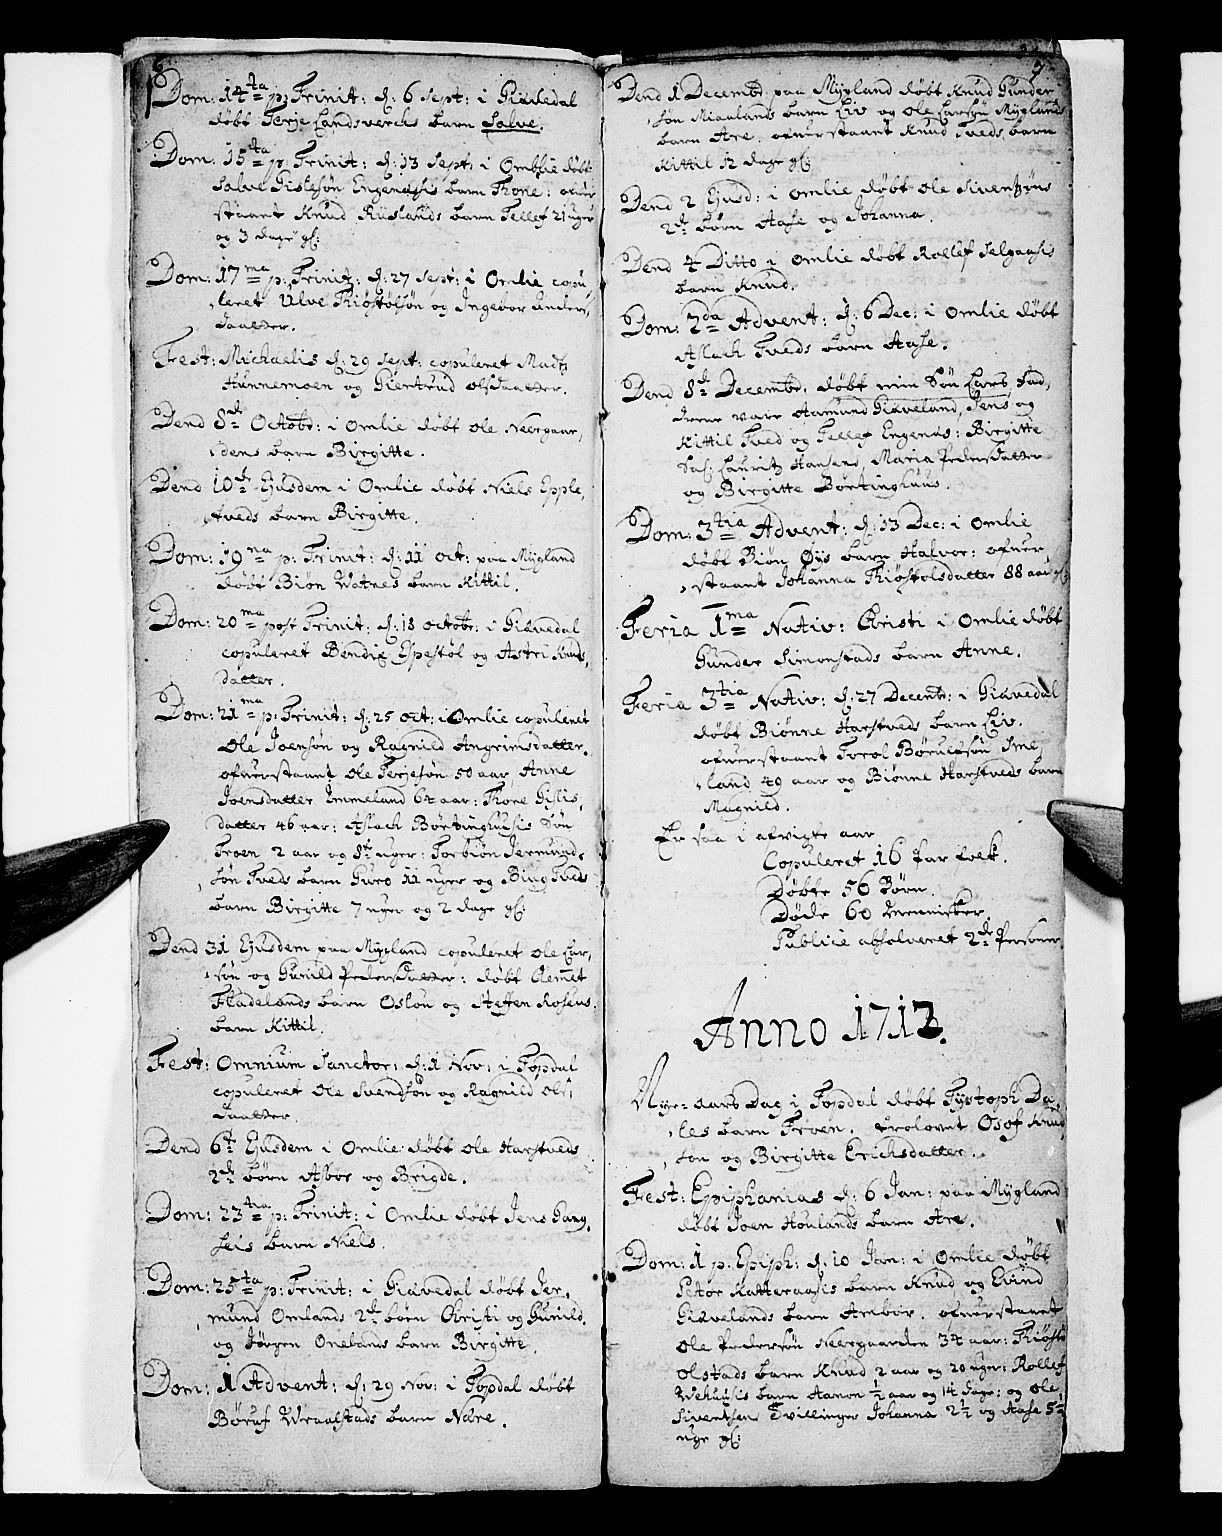 6.
Dom: 14ta p: Trinit: d: 6 Sept: i Giøvedal
døbt Terje Landsverchs barn Salve.
Dom: 15ta p: Trinit: d: 13 Sept: i Omblie døbt
Salve Gislesøn Engenesis barn Thone: ofuer
staaet Knud Riislands barn Tellef 21 uger
og 3 dage gl:
Dom: 17ma p: Trinit: d: 27 Sept: i Omlie copu
leret Ulve Kiøstolsøn og Ingebor Anders,
daatter.
Fest: Michaelis d: 29 Sept: copuleret Madtz
Hunnemoen og Giertrud olsdaatter.
Dend 8de Octobr: i Omlie døbt Ole Neergaar,
dens barn Birgitte.
Dend 10de Ejusdem i Omlie døbt Niels Epple,
tveds barn Birgitte.
Dom: 19na p: Trinit: d: 11 Oct: paa Mygland
døbt Biøn Watnes barn Kittil.
Dom: 20ma post Trinit: d: 18 Octobr: i Giøvedal
copuleret Bendix Espestøl og Astri Knuds,
datter.
Dom: 21ma p: Trinit: d: 25 Oct: i Omlie copuleret
Ole Joensøn og Ragnild Angrimsdatter.
ofuerstaaet Ole Terjesøn 50 aar, Anne
Joensdatter Immeland 64 aar: Thone Gislis,
datter 46 aar: Aslach Børtinghusis Søn
Troen 2 aar og 8te uger: Torbiøn Jermunds,
søn Tveds barn Guro 11 uger og Biug Tveds
barn Birgitte 7 uger og 2 dage gl.
Dend 31 Ejusdem paa Mygland copuleret Ole Lar,
søn og Gunild Pedersdatter: døbt Clemet
Fladelands barn Osløu og Steffen Rosens
barn Kittil.
Fest: Omnium Sanctor: d: 1 Nov: i Topdal
copuleret Ole Svendsøn og Ragnild Ols,
daatter.
Dend 6te Ejusdem i Omlie døbt Ole Harstveds
2de børn Asbor og Brigde.
Dom: 23tia p: Trinit: i Omlie døbt Jens Gang,
seis barn Niels.
Dom: 25ta p: Trinit: i Giøvedal døbt Jer,
mund Omlands 2de børn Christi og Gunild,
og Jørgen Onelands barn Birgitte.
Dom: 1 Advent: d: 29 Nov: i Topdal døbt
Børuf Wraalstads barn Nære.
7
Dend 1 Decembr: paa Mygland døbt Knud Gunder
søn Miaalands barn Liv og Ole Larsøn Myglands
barn Are. ofuerstaaet Knud Tveds barn
Kittil 12 dage gl:
Dend 2 Ejusd: i Omlie døbt Ole Sivertzøns
2de børn Aase og Johanna.
Dend 4 Ditto i Omlie døbt Rollef Selgaasis
barn Knud.
Dom: 2da Advent: d: 6 Dec: i Omlie døbt
Aslach Tveds barn Aase.
Dend 8de Decembr: døbt min Søn Lars, Fad,
derne vare Aamund Giøveland, Jens og
Kittil Tved og Tellef Engenes: Birgitte
Sal: Lauritz Hansens, Maria Pedersdatter
og Birgitte Børtinghuus.
Dom: 3tia Advent: d: 13 Dec: i Omlie
døbt Biøn Øys barn Halvor: ofuer,
staaet Johanna Kiøstolsdatter 88 aar gl:
Feria 1ma Nativ: Christi i Omlie døbt
Gunder Simonstads barn Anne.
Feria 3tia Nativ: d: 27 Decemb: i Giøvedal
døbt Biønne Harstveds barn Liv.
ofuerstaaet Torol Børulfsøn Sme,
land 49 aar og Biønne Harstveds barn
Magnild.
Er saa i afvigte aar
Copuleret 16 Par folk.
Døbte 56 Børn.
Døde 60 Mennisker.
Publice absolveret 2de Personer.
Anno 1712.
Nye-aars Dag i Topdal døbt Tystoph Da,
les barn Troen. trolovet Osof Knud,
søn og Birgitte Erichsdatter.
Fest: Epiphanias d: 6 Jan: paa Mygland
døbt Joen Houlands barn Are.
Dom: 1 p. Epiph: d: 10 Jan: i Omlie døbt
Peter Katteraasis barn Knud og Evind
Giøvelands barn Ambor. ofuerstaaet
Ole Pedersøn Neergaarden 34 aar: Kiøstel
Olstads barn Knud 2 aar og 20 uger: Rollef
Wehusis barn Aanon ½ aar og 14 dage: og Ole
Sivertsens Tvillinger Johanna 2½ og Aase 5½
uge gl: